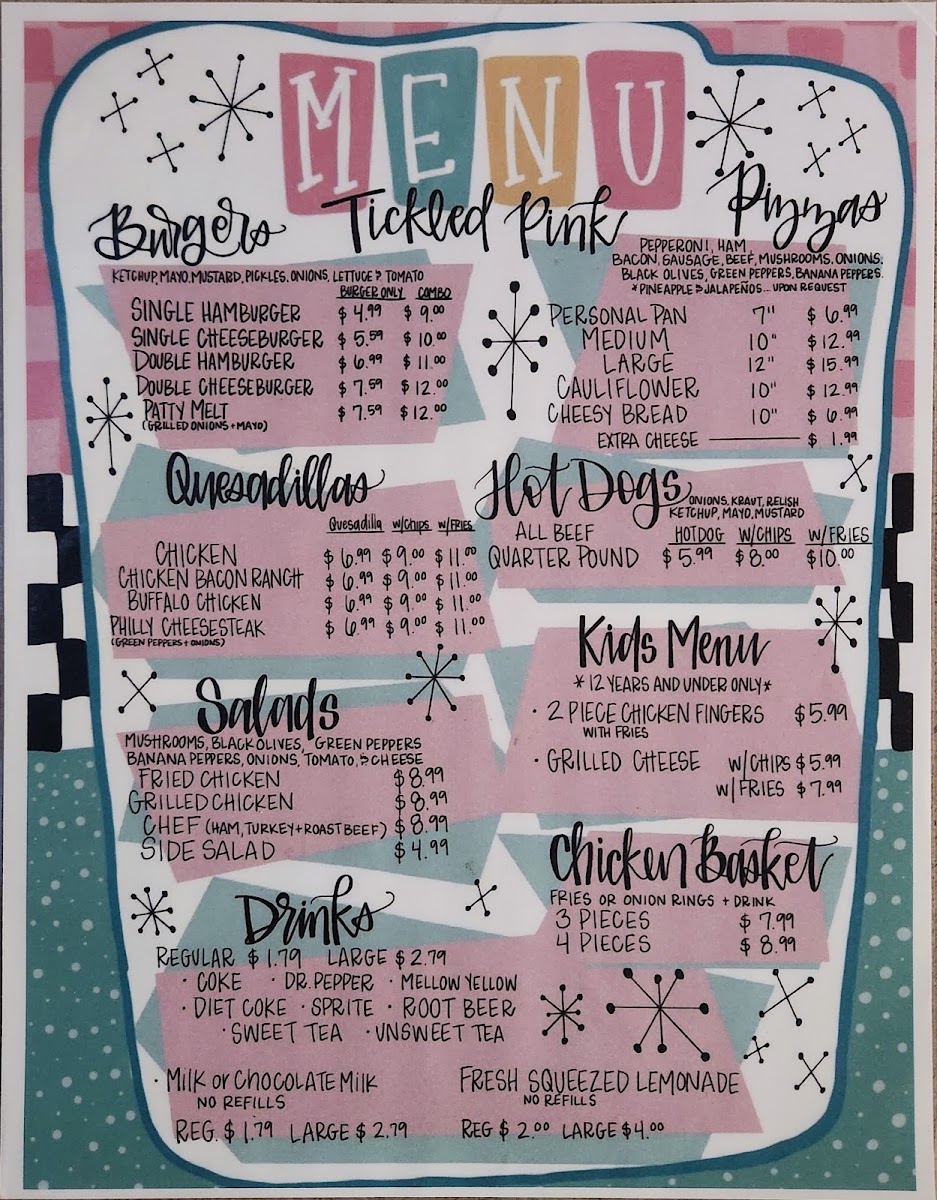 MENU
Tickled Pink
Burgers
KETCHUP, MAYO, MUSTARD, PICKLES, ONIONS, LETTUCE & TOMATO
BURGER ONLY COMBO
SINGLE HAMBURGER $4.99 $9.00
SINGLE CHEESEBURGER $5.59 $10.00
DOUBLE HAMBURGER $6.99 $11.00
DOUBLE CHEESEBURGER $7.59 $12.00
PATTY MELT $7.59 $12.00
(GRILLED ONIONS + MAYO)
Quesadillas
Quesadilla W/CHIPS W/FRIES
CHICKEN $6.99 $9.00 $11.00
CHICKEN BACON RANCH $6.99 $9.00 $11.00
BUFFALO CHICKEN $6.99 $9.00 $11.00
PHILLY CHEESESTEAK $6.99 $9.00 $11.00
(GREEN PEPPERS + ONIONS)
Salads
MUSHROOMS, BLACK OLIVES, GREEN PEPPERS
BANANA PEPPERS, ONIONS, TOMATO, & CHEESE
FRIED CHICKEN $8.99
GRILLED CHICKEN $8.99
CHEF (HAM, TURKEY + ROAST BEEF) $8.99
SIDE SALAD $4.99
Drinks
REGULAR $1.79 LARGE $2.79
· COKE · DR. PEPPER · MELLOW YELLOW
· DIET COKE · SPRITE · ROOT BEER
· SWEET TEA · UNSWEET TEA
· MILK or CHOCOLATE MILK
NO REFILLS
REG. $1.79 LARGE $2.79
Pizzas
PEPPERONI, HAM,
BACON, SAUSAGE, BEEF, MUSHROOMS, ONIONS,
BLACK OLIVES, GREEN PEPPERS, BANANA PEPPERS.
*PINEAPPLE & JALAPEÑOS... UPON REQUEST
PERSONAL PAN 7" $6.99
MEDIUM 10" $12.99
LARGE 12" $15.99
CAULIFLOWER 10" $12.99
CHEESY BREAD 10" $6.99
EXTRA CHEESE $1.99
Hot Dogs
ONIONS, KRAUT, RELISH
KETCHUP, MAYO, MUSTARD
ALL BEEF HOTDOG W/CHIPS W/FRIES
QUARTER POUND $5.99 $8.00 $10.00
Kids Menu
*12 YEARS AND UNDER ONLY*
· 2 PIECE CHICKEN FINGERS $5.99
WITH FRIES
· GRILLED CHEESE W/CHIPS $5.99
W/FRIES $7.99
Chicken Basket
FRIES OR ONION RINGS + DRINK
3 PIECES $7.99
4 PIECES $8.99
FRESH SQUEEZED LEMONADE
NO REFILLS
REG $2.00 LARGE $4.00